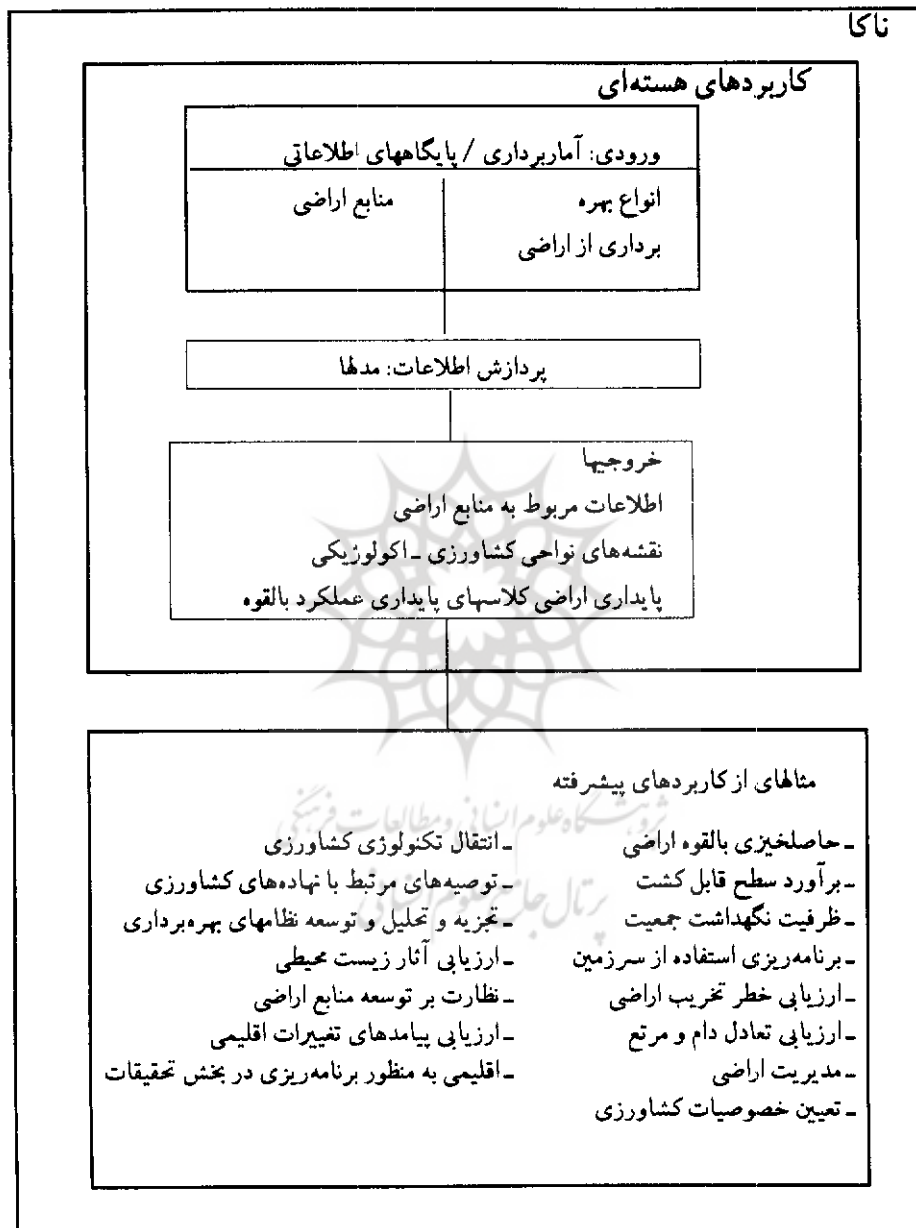 ناکا
کاربردهای هسته‌ای
ورودی: آماربرداری / پایگاههای اطلاعاتی
انواع بهره
برداری از اراضی
منابع اراضی
پردازش اطلاعات: مدلها
خروجیها
اطلاعات مربوط به منابع اراضی
نقشه‌های نواحی کشاورزی ـ اکولوژیکی
پایداری اراضی کلاسهای پایداری عملکرد بالقوه
مثالهای از کاربردهای پیشرفته
پژوهشگاه علوم انسانی و مطالعات فرهنگی
پرتال جامع علوم انسانی
ـ حاصلخیزی بالقوه اراضی
ـ برآورد سطح قابل کشت
ـ ظرفیت نگهداشت جمعیت
ـ برنامه‌ریزی استفاده از سرزمین
ـ ارزیابی خطر تخریب اراضی
ـ ارزیابی تعادل دام و مرتع
ـ مدیریت اراضی
ـ تعیین خصوصیات کشاورزی
ـ انتقال تکنولوژی کشاورزی
ـ توصیه‌های مرتبط با نهاده‌های کشاورزی
ـ تجزیه و تحلیل و توسعه نظامهای بهره‌برداری
ـ ارزیابی آثار زیست محیطی
ـ نظارت بر توسعه منابع اراضی
ـ ارزیابی پیامدهای تغییرات اقلیمی
ـ اقلیمی به منظور برنامه‌ریزی در بخش تحقیقات